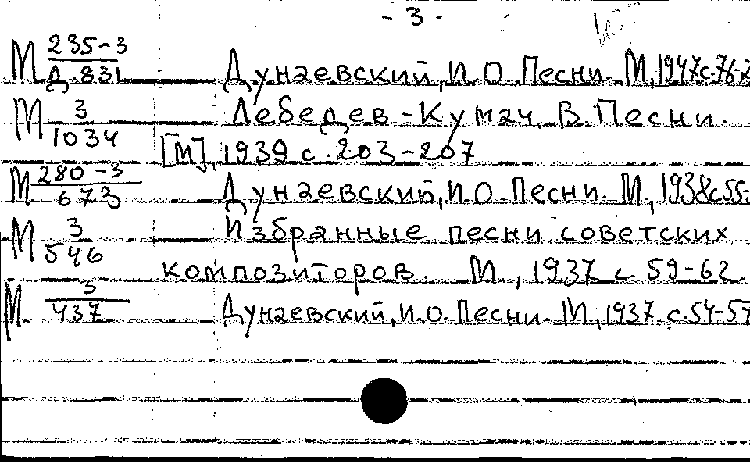 - 3 -
М 235-3 / Д 831 Дунаевский, И.О. Песни. М, 1947 с. 76-
М 3 / 1034 Лебедев-Кумач, В. Песни.
[М], 1939 с. 203-207
М 280-3 / 673 Дунаевский, И.О. Песни. М., 1938 с. 55.
М 3 / 546 Избранные песни советских
композиторов. М., 1937 с 59-62.
М 3 / 437 Дунаевский, И.О. Песни. М., 1937. с. 54-57